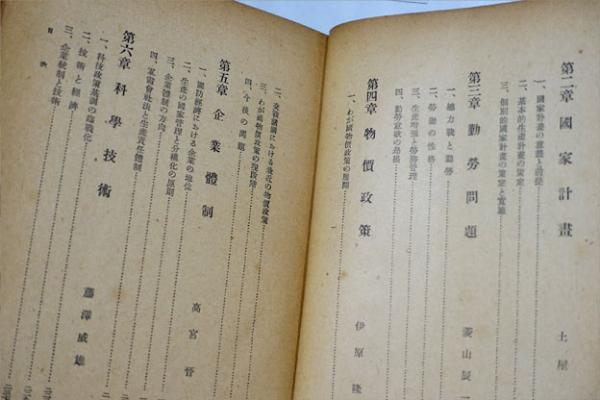 第二章 國家計畫
土屋
一、國家計畫の
二、基本的生產計畫の策定
三、個別的國家計畫の策定と實施
第三章 勤勞問題
菱山辰一
一、總力戰と勤勞
二、勞働の性格
三、生產增强と勞務管理
四、勤勞意欲の昂揚
第四章 物價政策
伊原隆
一、わが國物價政策の展開
二、交戰諸國における最近の物價政策
三、わが國物價政策の現段階
四、今後の問題
第五章 企業體制
高宮晉
一、國防經濟における企業の地位
二、生產の國家管理と分權化の原則
三、企業體制の方向
四、軍需會社法と生產責任體制
第六章 科學技術
藤澤威雄
一、科技政策基調の臨戰化
二、技術と經濟
三、企業統制と技術
目次